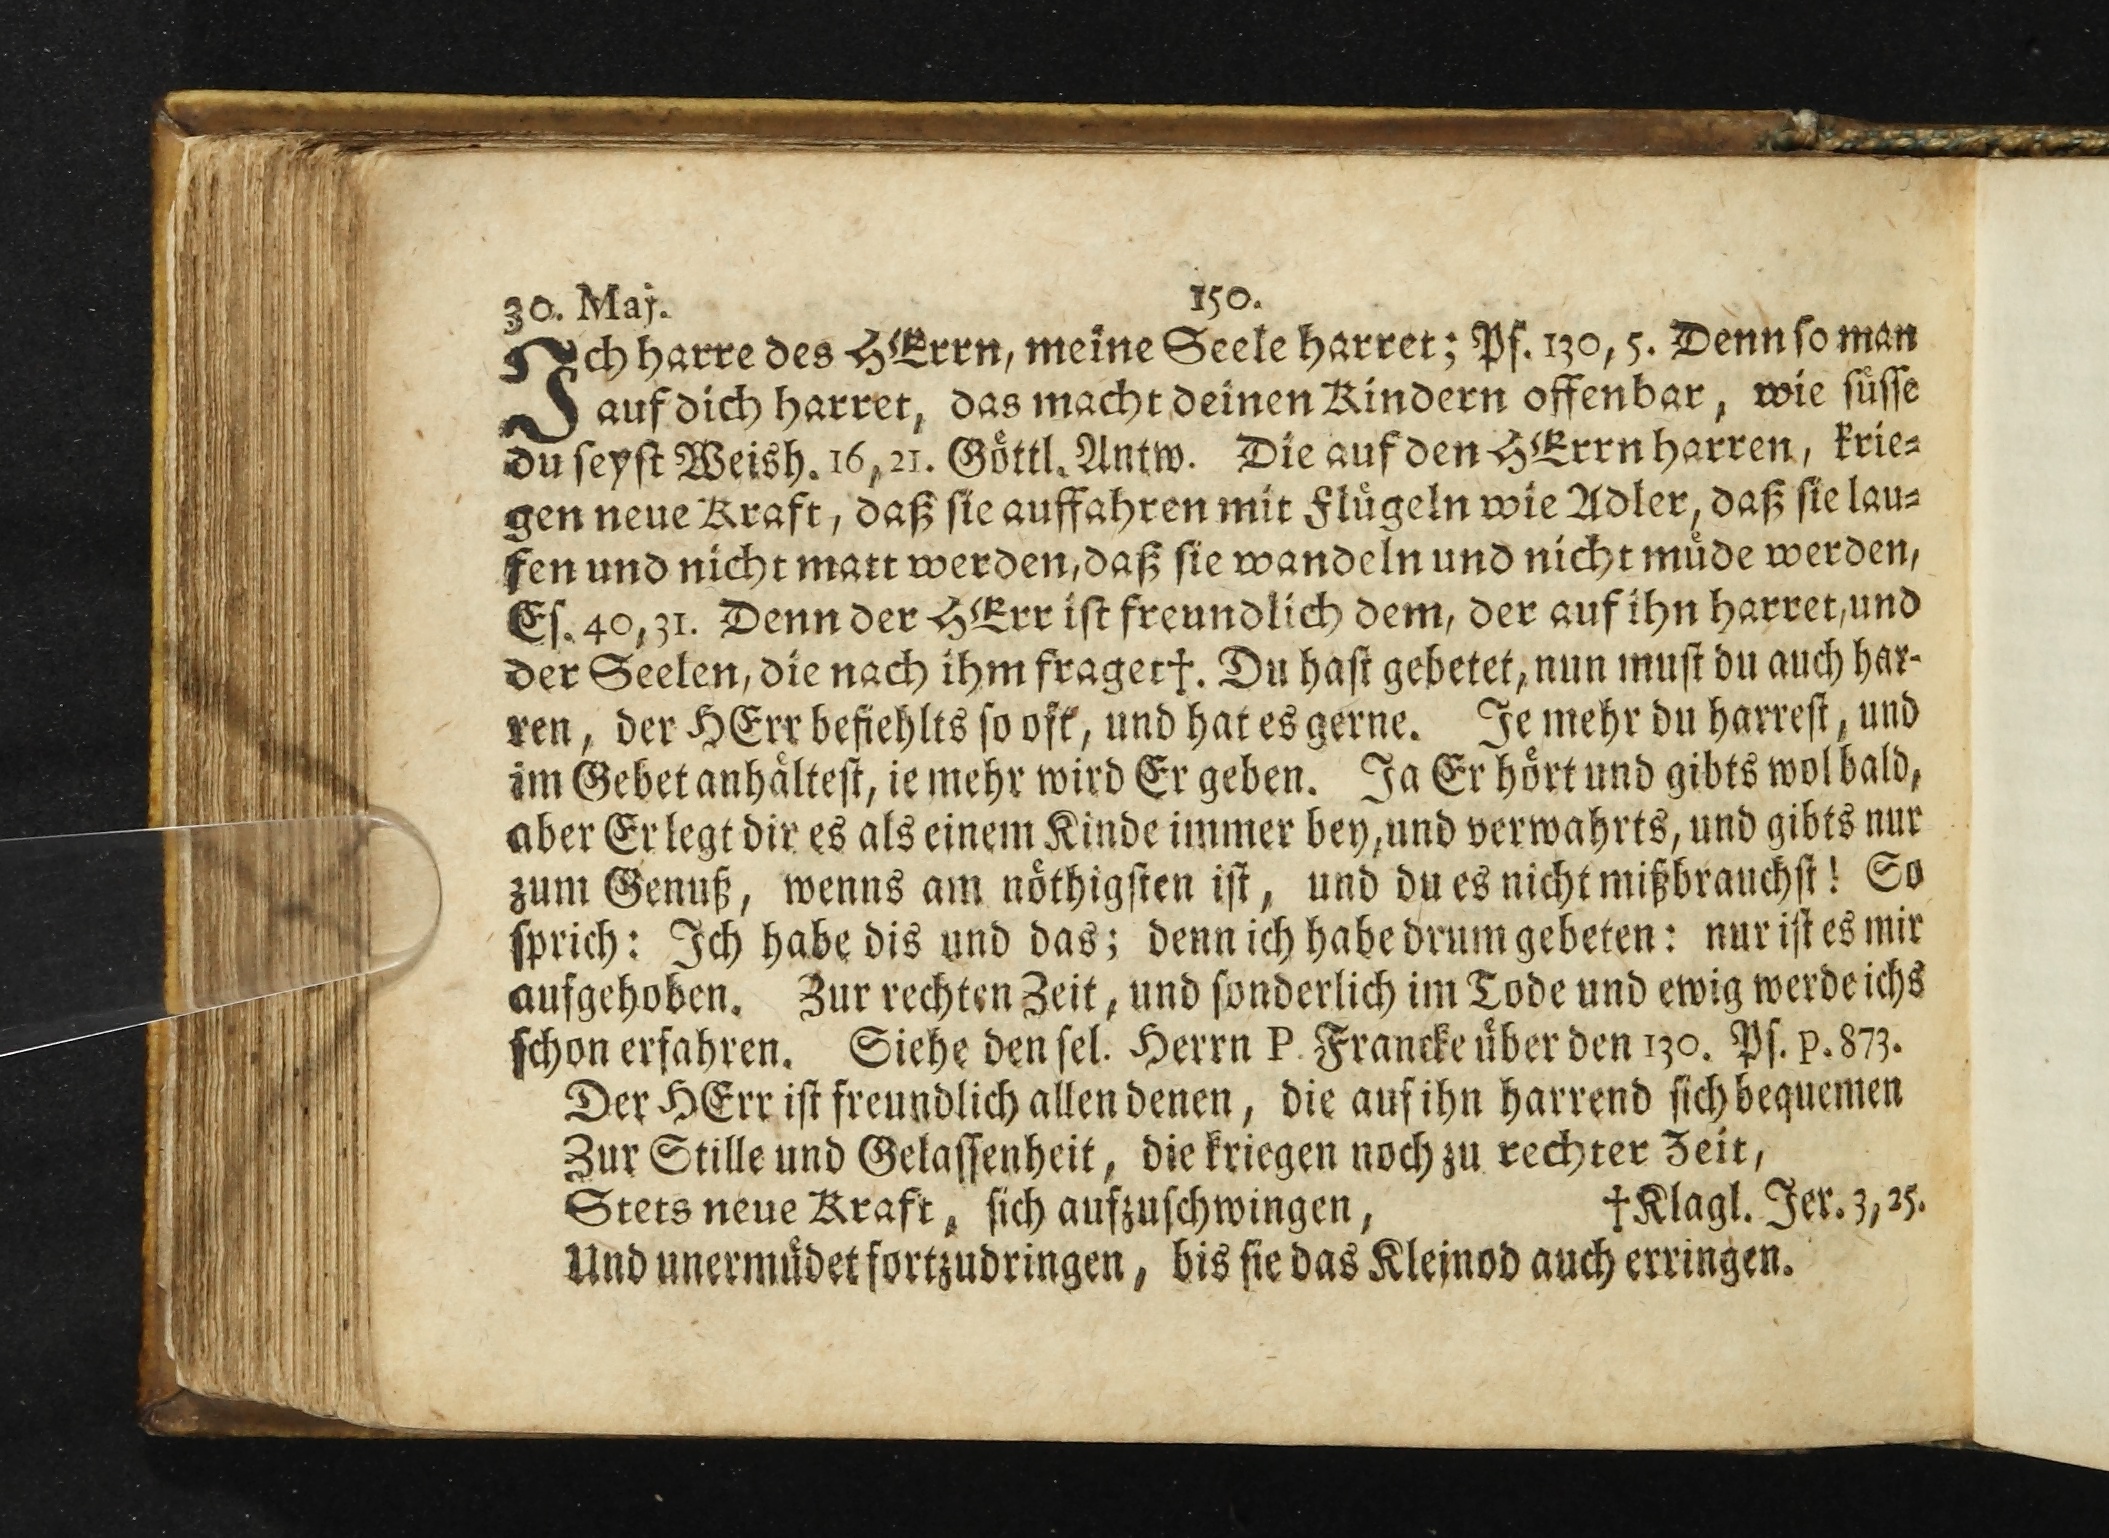 30. Maj.
150.
Ich harre des HErrn, meine Seele harret; Ps. 130, 5. Denn so man
auf dich harret, das macht deinen Kindern offenbar, wie süsse
du seyst Weish. 16, 21. Göttl. Antw. Die auf den HErrn harren, krie-
gen neue Kraft, daß sie auffahren mit Flügeln wie Adler, daß sie lau-
fen und nicht matt werden, daß sie wandeln und nicht müde werden,
Es. 40, 31. Denn der HErr ist freundlich dem, der auf ihn harret, und
der Seelen, die nach ihm fraget†. Du hast gebetet, nun must du auch har-
ren, der HErr befiehlts so oft, und hat es gerne. Je mehr du harrest, und
im Gebet anhältest, ie mehr wird Er geben. Ja Er hört und gibts wol bald,
aber Er legt dir es als einem Kinde immer bey, und verwahrts, und gibts nur
zum Genuß, wenns am nöthigsten ist, und du es nicht mißbrauchst! So
sprich: Ich habe dis und das; denn ich habe drum gebeten: nur ist es mir
aufgehoben. Zur rechten Zeit, und sonderlich im Tode und ewig werde ichs
schon erfahren. Siehe den sel. Herrn P. Francke über den 130. Ps. p. 873.
Der HErr ist freundlich allen denen, die auf ihn harrend sich bequemen
Zur Stille und Gelassenheit, die kriegen noch zu rechter Zeit,
Stets neue Kraft, sich aufzuschwingen, †Klagl. Jer. 3, 25.
Und unermüdet fortzudringen, bis sie das Kleinod auch erringen.